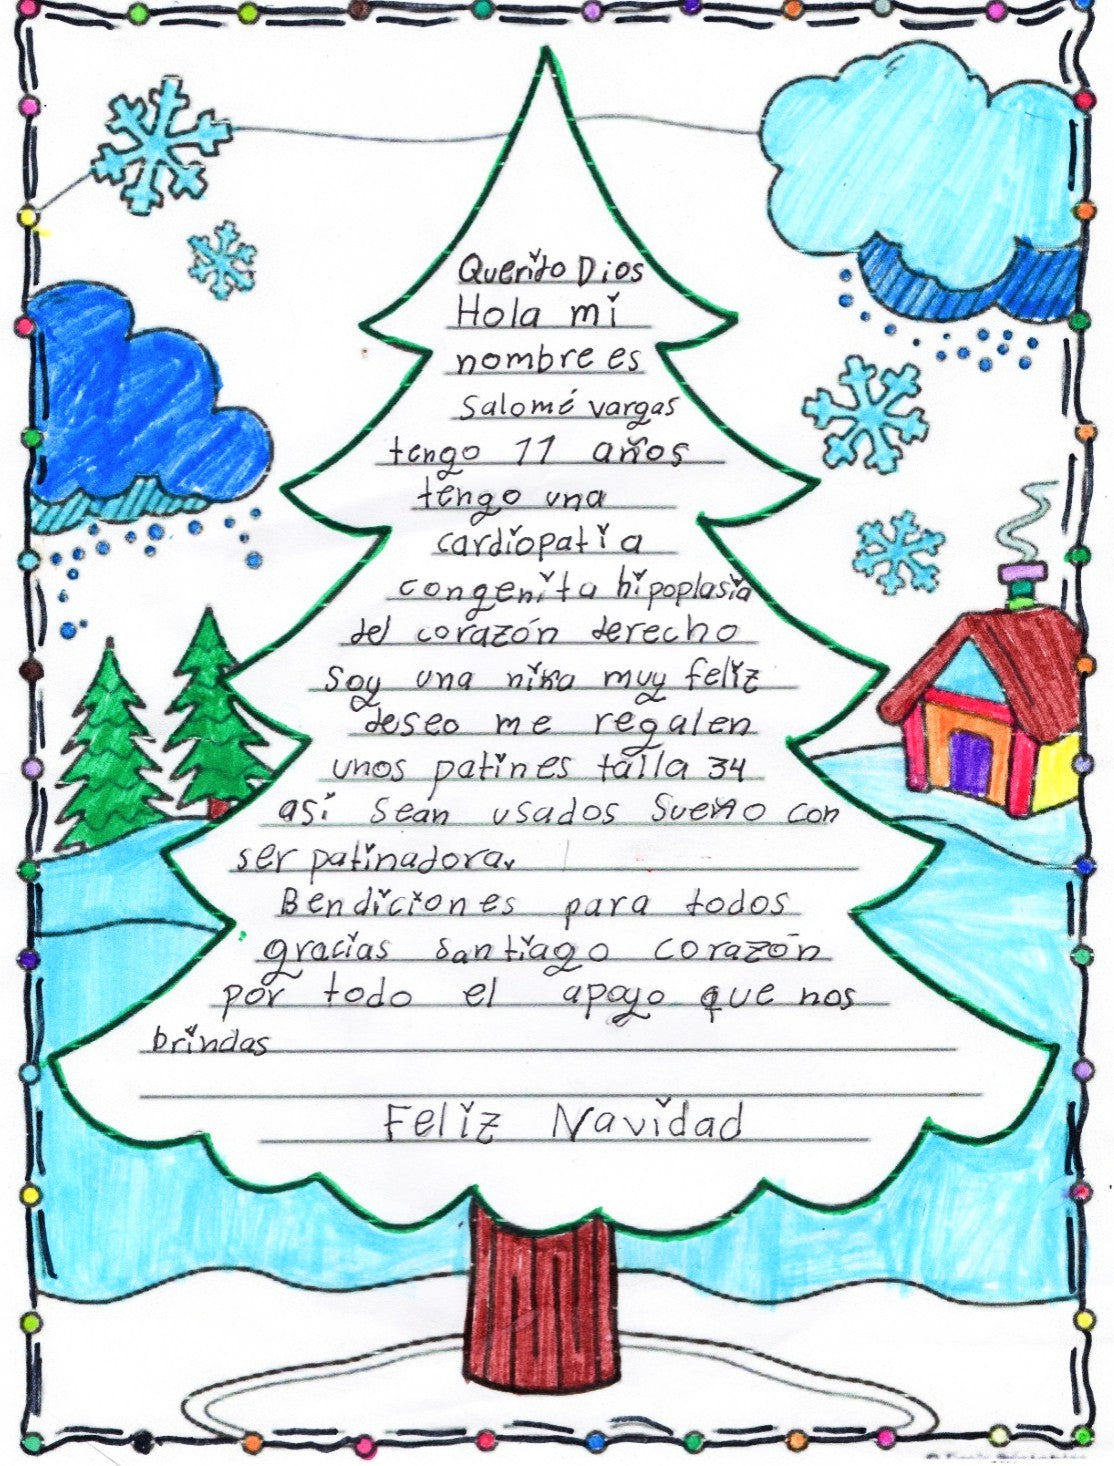 Querido Dios
Hola mi
nombre es
Salomé vargas
tengo 11 años
tengo una
cardiopatia
congenita hipoplasia
del corazón derecho
Soy una niña muy feliz
deseo me regalen
unos patines talla 34
asi Sean usados Sueño con
ser patinadora.
Bendiciones para todos
gracias Santiago corazón
por todo el apoyo que nos
brindas
Feliz Navidad